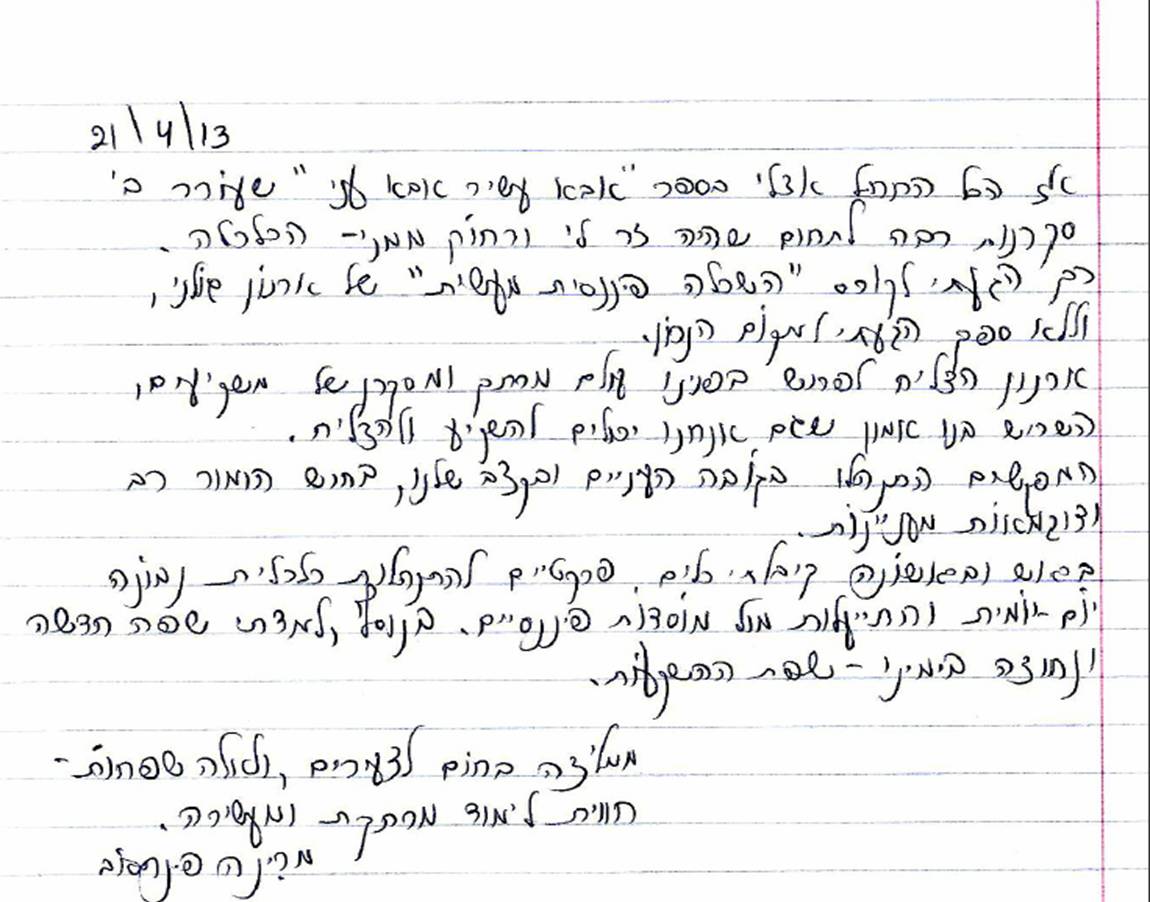 21\4\13
אז הכל התחיל אצלי בספר "אבא עשיר אבא עני" שעורר בי
סקרנות רבה לתחום שהיה זר לי ורחוק ממני - הכלכלה.
כך הגעתי לקורס "השכלה פיננסית מעשית" של ארנון גולני,
וללא ספק הגעתי למקום הנכון.
ארנון הצליח לפרוש בפנינו עולם מרתק ומסקרן של משקיעים,
השריש בנו אמון שגם אנחנו יכולים להשקיע ולהצליח.
המפגשים התנהלו בגובה העיניים ובקצב שלנו, בחוש הומור רב
ודוגמאות מעניינות.
בראש ובראשונה קיבלתי כלים פרקטיים להתנהלות כלכלית נבונה
יום-יומית והתייעלות מול מוסדות פיננסיים. בנוסף, למדתי שפה חדשה
ונחוצה בימינו - שפת ההשקעות.
ממליצה בחום לצעירים, ולאלה שפחות -
חווית לימוד מרתקת ומעשירה.
מרינה